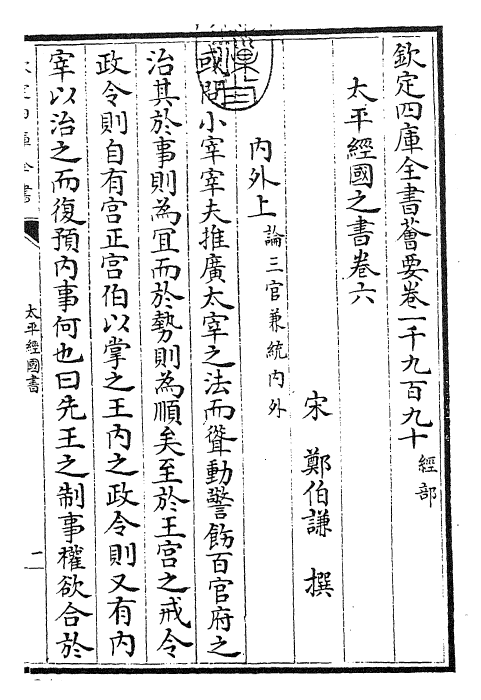 欽定四庫全書薈要卷一千九百九十 經部
太平經國之書卷六
宋 鄭伯謙 撰
內外上 論三官兼統內外
或問小宰宰夫推廣太宰之法而聳動警飭百官府之
治其於事則為宜而於勢則為順矣至於王宫之戒令
政令則自有宫正宫伯以掌之王內之政令則又有內
宰以治之而復預內事何也曰先王之制事權欲合於
太平經國書